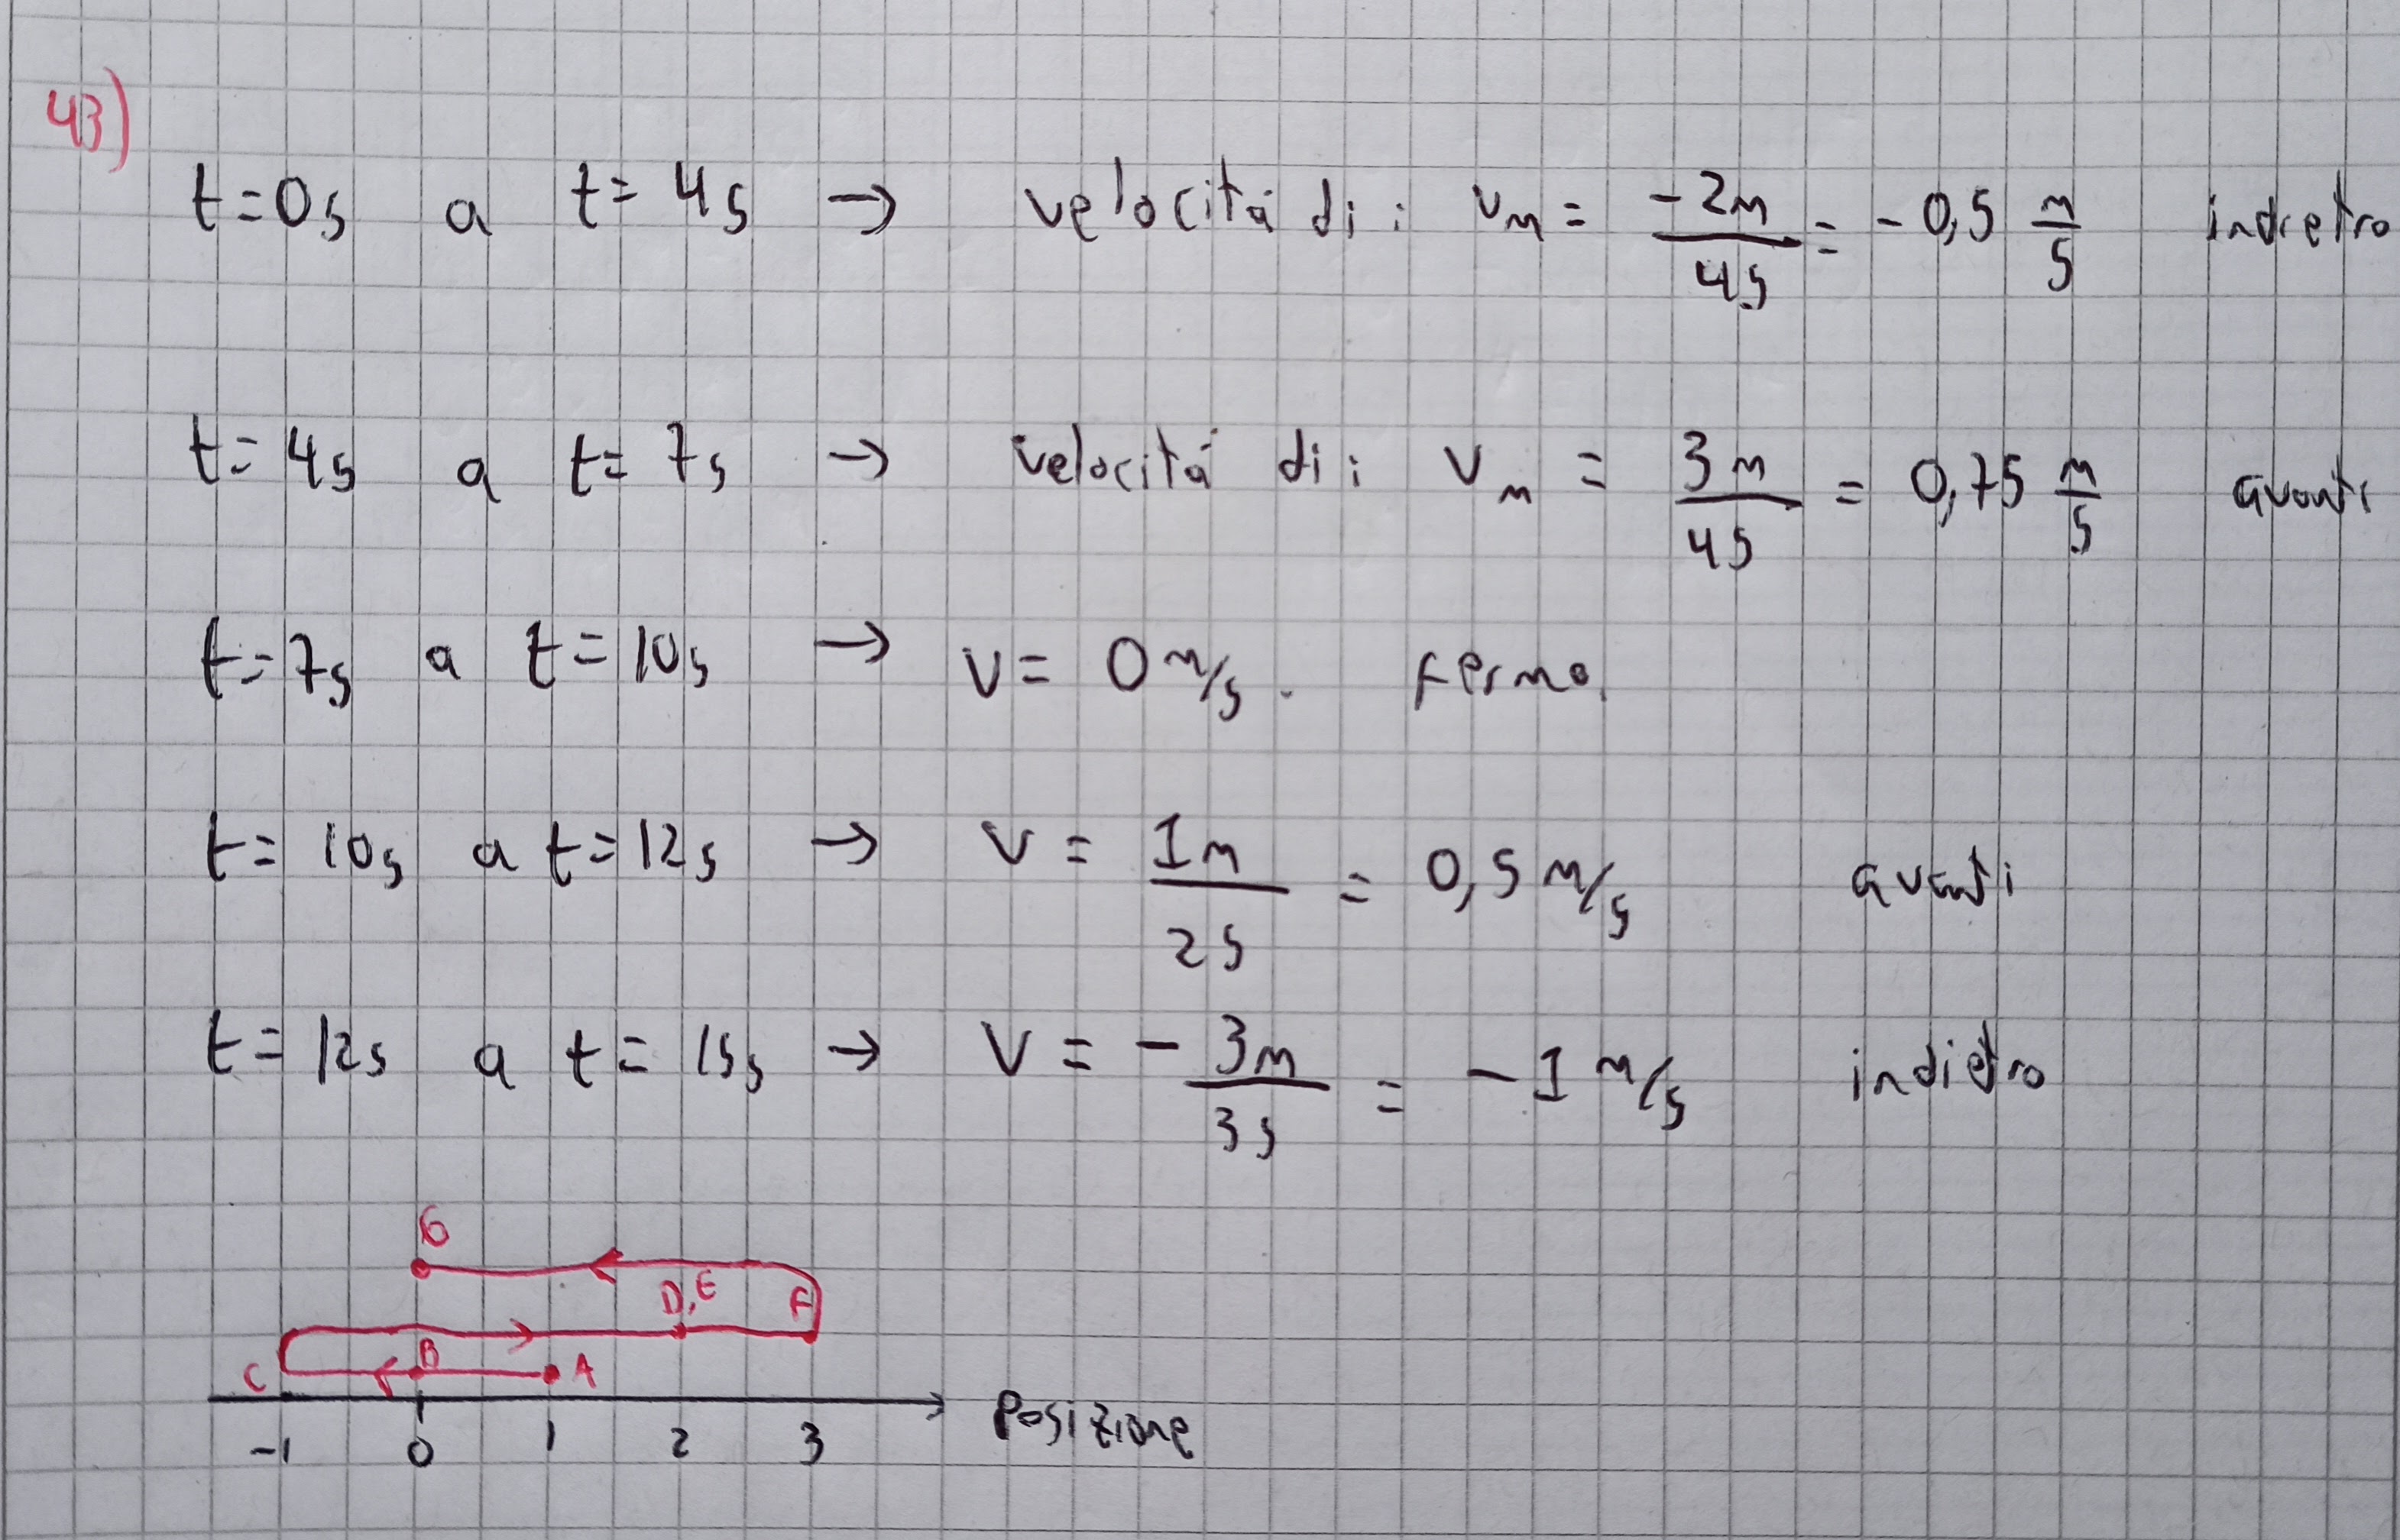 43)
t=0s a t=4s → velocità di: vm = -2m/4s = -0,5 m/s indietro
t=4s a t=7s → velocità di: vm = 3m/4s = 0,75 m/s avanti
t=7s a t=10s → v= 0 m/s. Fermo.
t=10s a t=12s → v = 1m/2s = 0,5 m/s avanti
t=12s a t=15s → v = - 3m/3s = -1 m/s indietro
G
D,E F
C B A
-1 0 1 2 3 Posizione